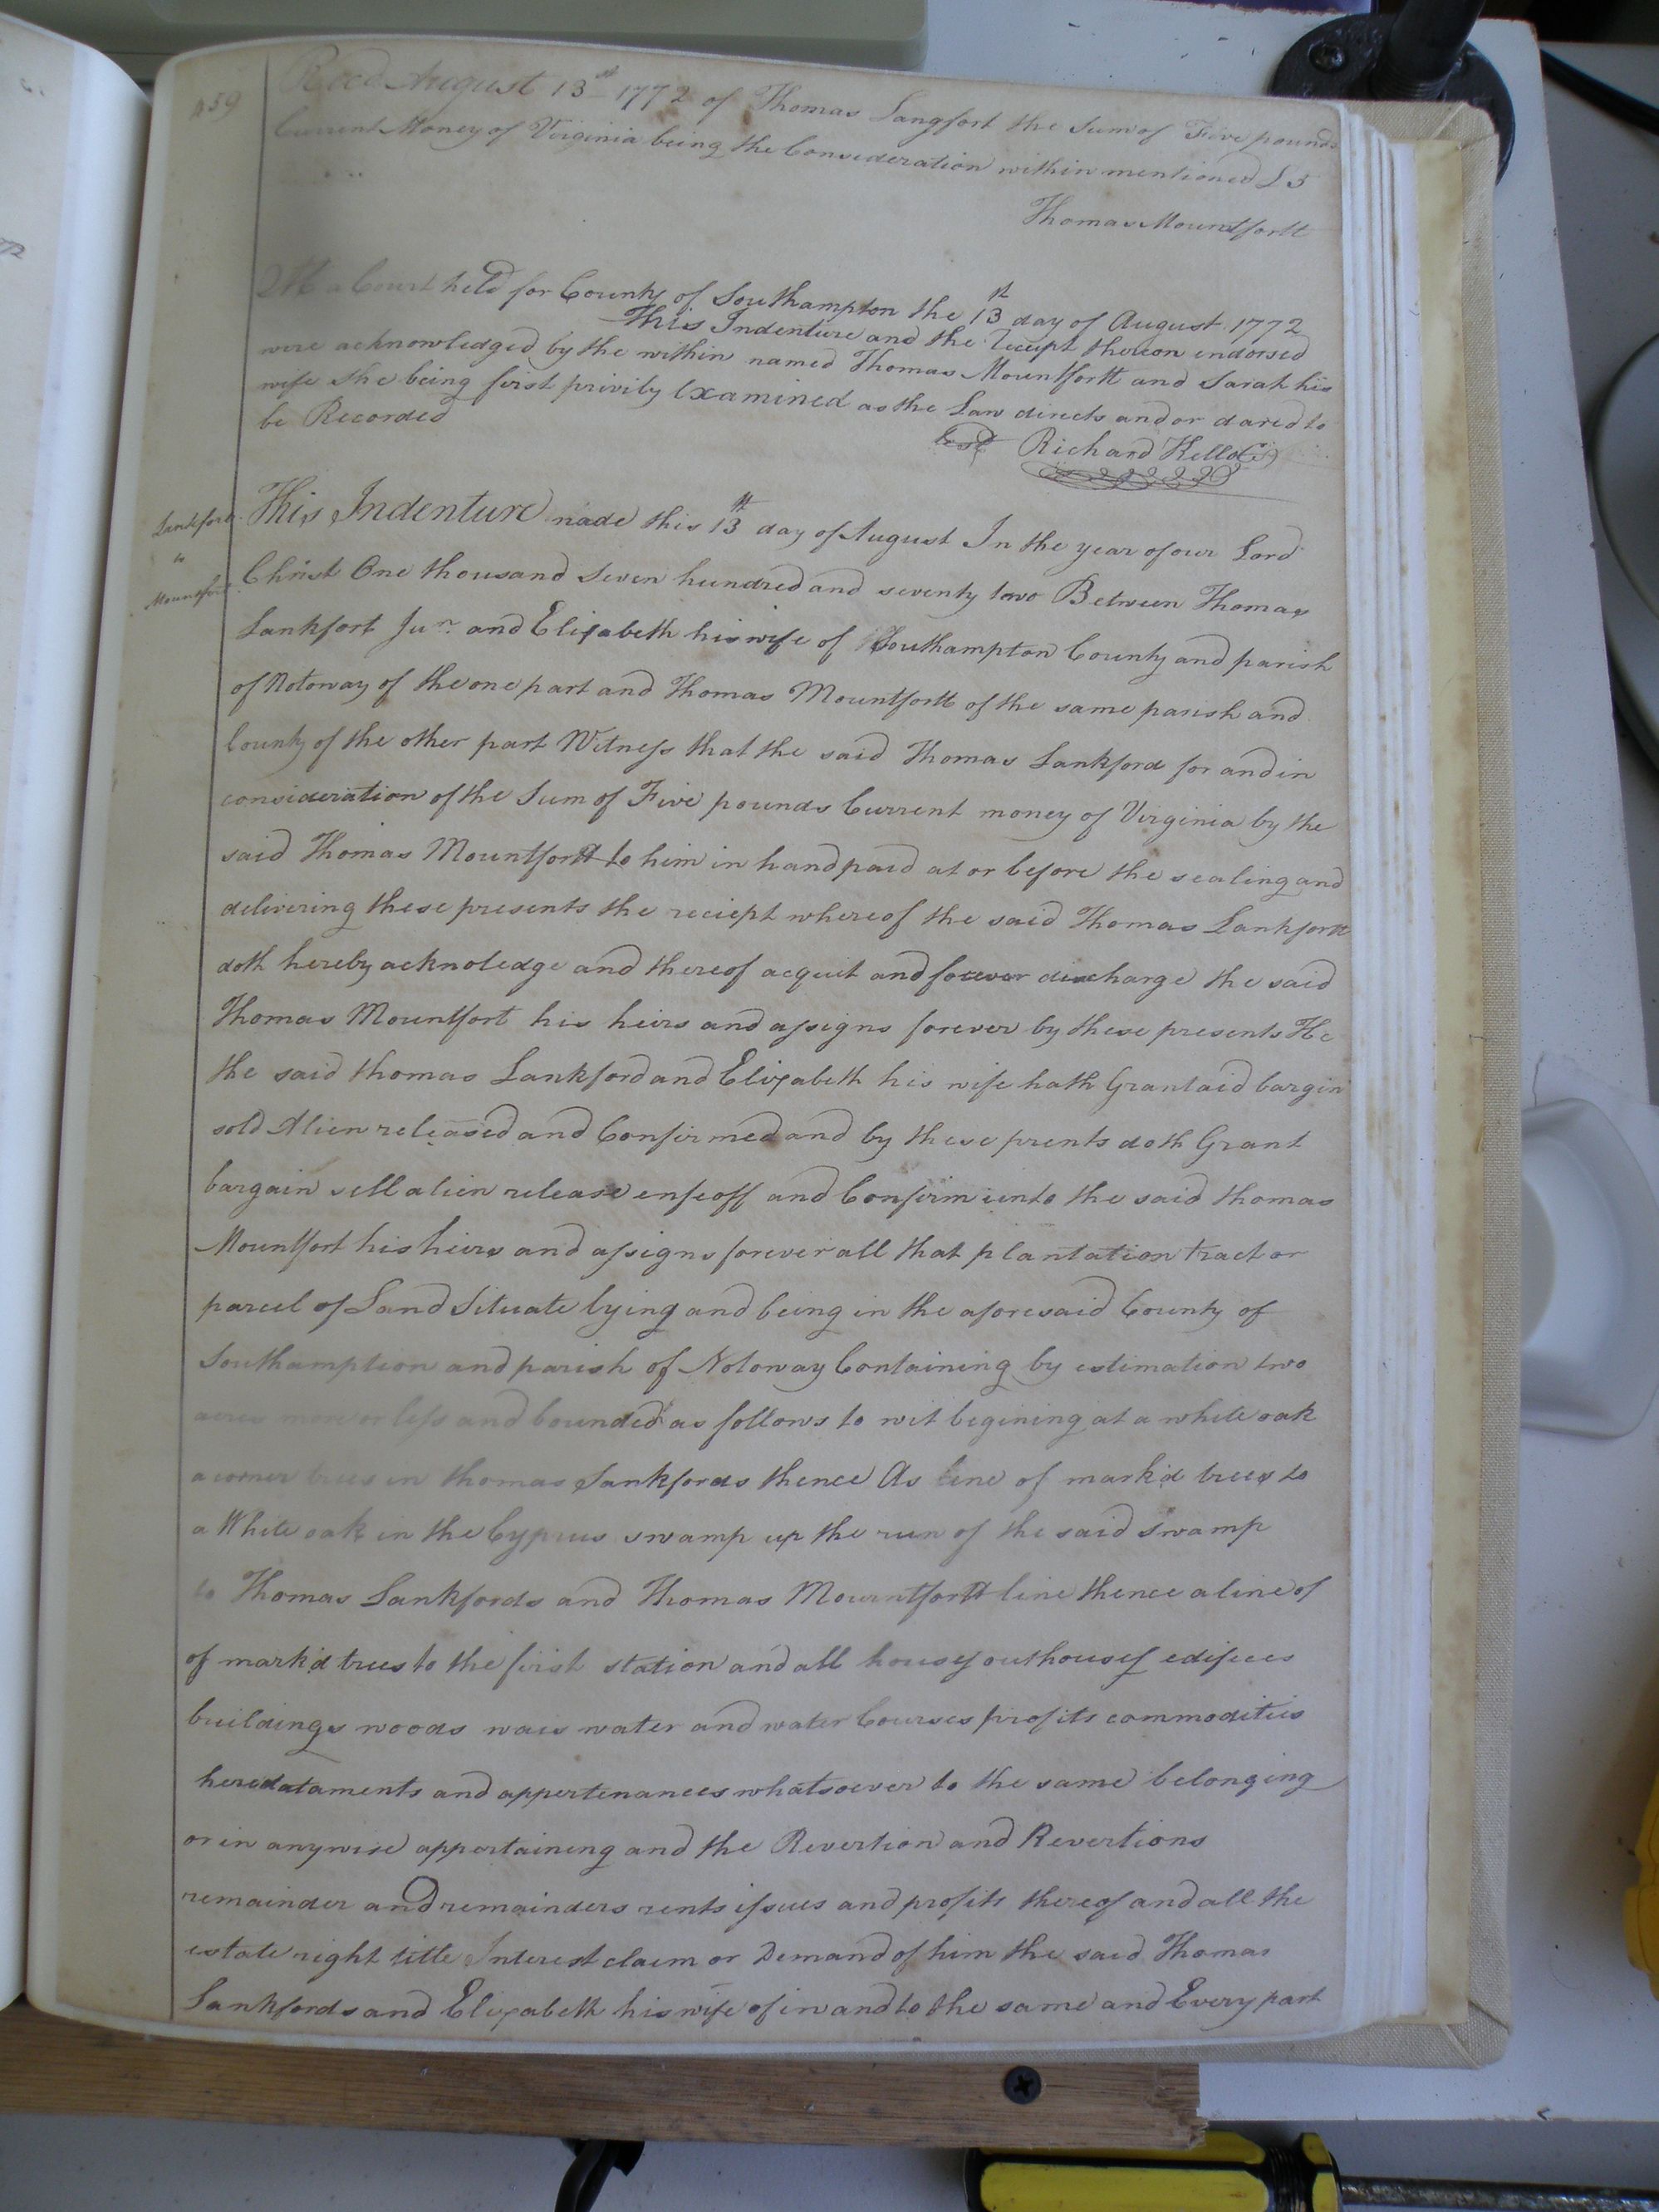 459
Recd August 13th 1772 of Thomas Langfort the Sum of Five pounds
Current Money of Virginia being the Consideration within mentioned £5
Thomas Mountfortt
At a Court held for County of Southampton the 13th day of August 1772
This Indenture and the Receipt thereon endorsed
were acknowledged by the within named Thomas Mountfortt and Sarah his
wife she being first privily Examined as the Law directs and or dared to
be Recorded
Test Richard Kello CC
Lankfort
to
Mountfort
This Indenture made this 13th day of August In the year of our Lord
Christ One thousand Seven hundred and seventy two Between Thomas
Lankfort Junr. and Elizabeth his wife of Southampton County and parish
of Notoway of the one part and Thomas Mountfortt of the same parish and
County of the other part Witness that the said Thomas Lankford for and in
consideration of the Sum of Five pounds Current money of Virginia by the
said Thomas Mountfortt to him in hand paid at or before the sealing and
delivering these presents the reciept whereof the said Thomas Lankfortt
doth hereby acknoledge and thereof acquit and forever discharge the said
Thomas Mountfort his heirs and assigns forever by these presents He
the said thomas Lankford and Elizabeth his wife hath Grantaid bargin
sold Alien released and Confirmed and by these prents doth Grant
bargain sell alien release enfeoff and Confirm unto the said thomas
Mountfort his heirs and assigns forever all that plantation tract or
parcel of Land Situate lying and being in the aforesaid County of
Southamption and parish of Notoway Containing by estimation two
acres more or less and bounded as follows to wit begining at a white oak
a corner trees in thomas Lankfords thence As line of mark'd trees to
a White oak in the Cyprus swamp up the run of the said swamp
to Thomas Lankfords and Thomas Mountfortt line thence a line of
of mark'd trees to the first station and all houses outhouses edifices
buildings woods wais water and water Courses profits commodities
heredataments and appertenances whatsoever to the same belonging
or in anywise appertaining and the Revertion and Revertions
remainder and remainders rents issues and profits thereof and all the
estate right title Interest claim or Demand of him the said Thomas
Lankfords and Elizabeth his wife of in and to the same and Every part